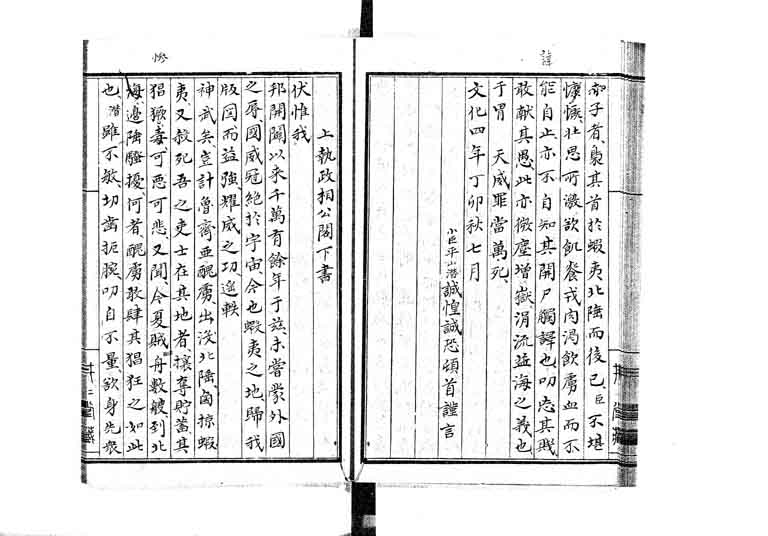 諱
子者、梟其首於蝦夷北陲而後已、臣不堪
慷慨、壮思所激、欲飢餐戎肉、渇飲虜血、而不
能自止、亦不自知其開尸觸譯也、叨忘其賤
敢献其愚、此亦微塵増嶽、涓流益海之義也
于冒　天威、罪當萬死、
文化四年丁卯秋七月
小臣平山潜誠惶誠恐頓首謹言
惨
上執政相公閣下書
伏惟我
邦開闢以来千萬有餘年于茲、未嘗蒙外國
之辱、國威冠絶於宇宙、今也蝦夷之地歸我
版図而益強、耀威之功遥軼
神武矣、豈計魯齊亜醜虜、出没北陲、鹵掠蝦
夷、又殺死吾之吏士在其地者、攘奪貯蓄其
猖獗、毒可悪可悲、又聞今夏賊舟数艘到北
海邊強騒擾、何者醜虜敢肆其猖狂之如此
也、潜雖不敏、切歯扼腕、叨自不量、欲身先衆